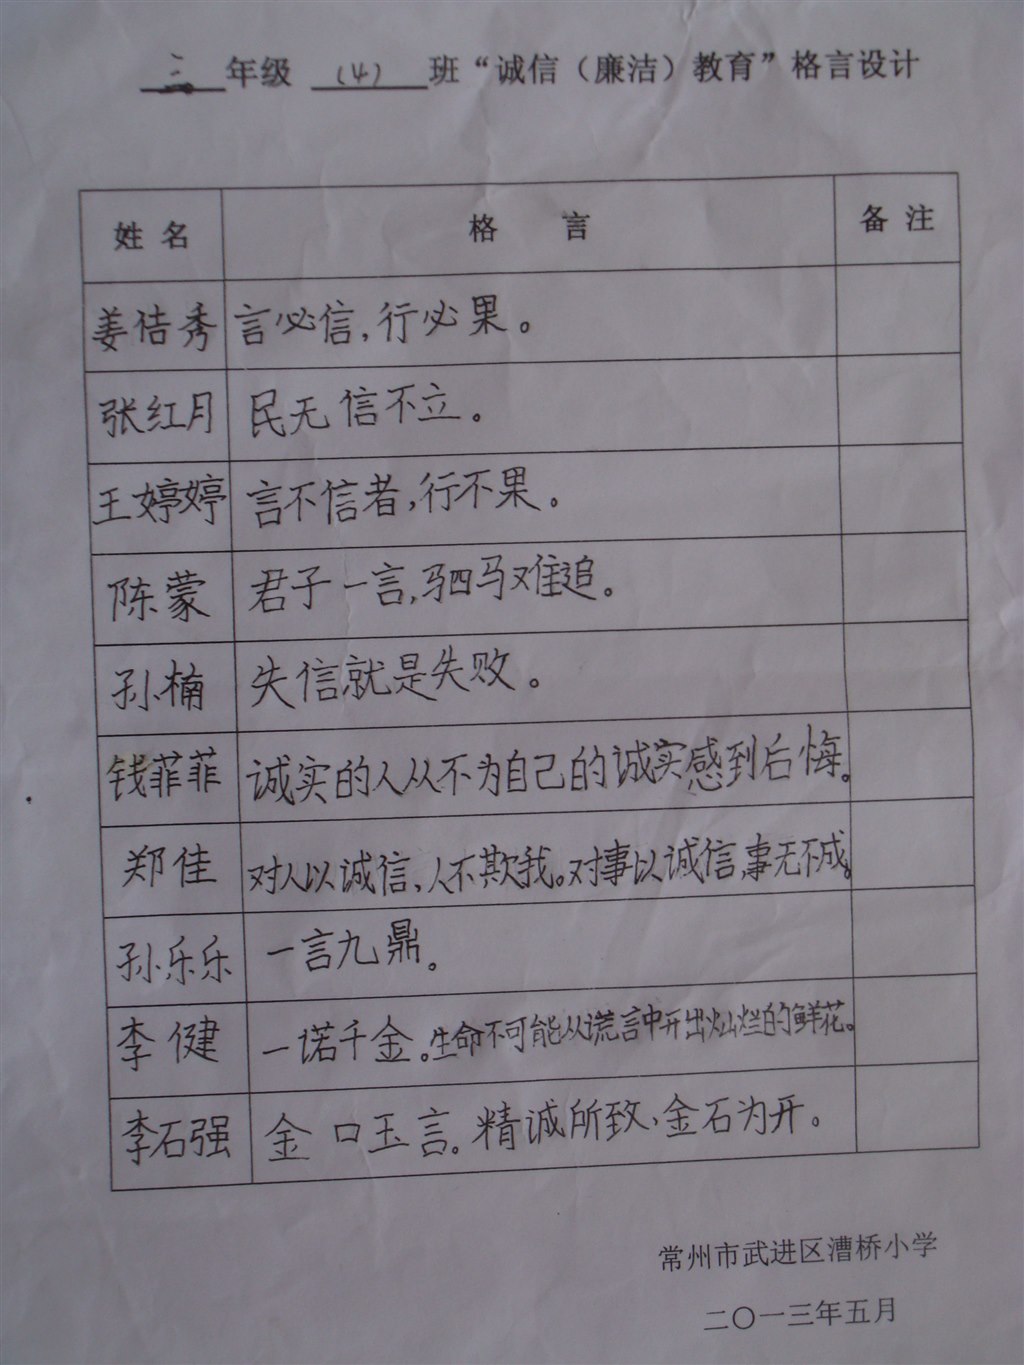 三年级 (4) 班“诚信（廉洁）教育”格言设计
姓名 格言 备注
姜佶秀 言必信，行必果。
张红月 民无信不立。
王婷婷 言不信者，行不果。
陈蒙 君子一言，驷马难追。
孙楠 失信就是失败。
钱菲菲 诚实的人从不为自己的诚实感到后悔。
郑佳 对人以诚信，人不欺我。对事以诚信，事无不成。
孙乐乐 一言九鼎。
李健 一诺千金。生命不可能从谎言中开出灿烂的鲜花。
李石强 金口玉言。精诚所致、金石为开。
常州市武进区漕桥小学
二〇一三年五月